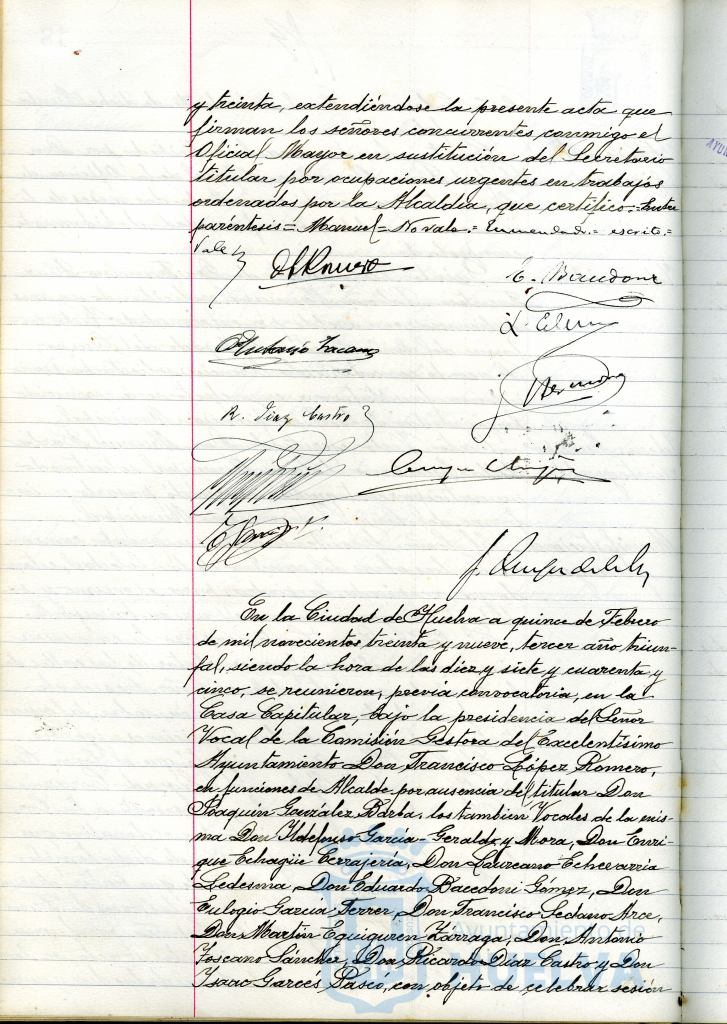 y treinta, extendiéndose la presente acta que
firman los señores concurrentes conmigo el
Oficial Mayor en sustitución del Secretario
titular por ocupaciones urgentes en trabajos
ordenados por la Alcaldía, que certifico.=Entre
paréntesis= Manuel= No vale.= Enmendado.= escrito.=
Vale
Antonio Toscano
E. Bacedoni
R. Díaz Castro
En la Ciudad de Huelva a quince de Febrero
de mil novecientos treinta y nueve, tercer año triun-
fal, siendo la hora de las diez y siete y cuarenta y
cinco, se reunieron, previa convocatoria, en la
Casa Capitular, bajo la presidencia del Señor
Vocal de la Comisión Gestora del Excelentísimo
Ayuntamiento Don Francisco López Romero,
en funciones de Alcalde por ausencia del titular Don
Joaquín González Barba, los tambien Vocales de la mis-
ma Don Ildefonso García-Geraldy y Mora, Don Enri-
que Echagüe Cerrajería, Don Laureano Echevarria
Ledesma, Don Eduardo Bacedoni Gómez, Don
Eulogio Garcia Ferrer, Don Francisco Sedano Arce,
Don Martín Eguiguren Zarraga, Don Antonio
Toscano Sánchez, Don Ricardo Díaz Castro y Don
Isaac Garcés Pascó, con objeto de celebrar sesión
Ayuntamiento de
HUELVA